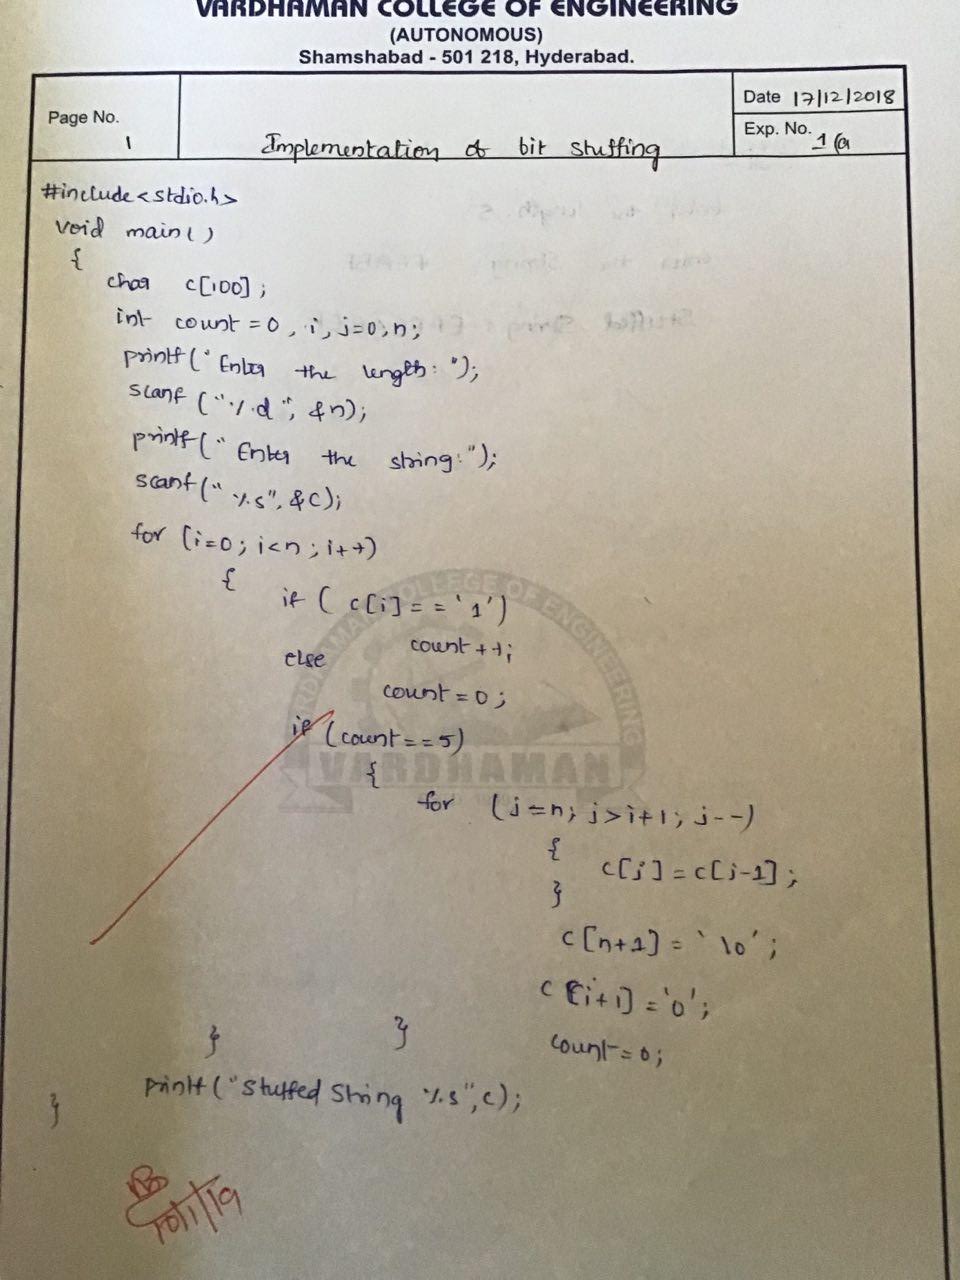 VARDHAMAN COLLEGE OF ENGINEERING
(AUTONOMOUS)
Shamshabad - 501 218, Hyderabad.
Page No.
1
Implementation of bit stuffing
Date 17/12/2018
Exp. No. 1(a
#include<stdio.h>
void main()
{
char c[100];
int count=0, i, j=0,n;
printf("Enter the length: ");
scanf ("%d", &n);
printf(" Enter the string:");
scanf("%s", &c);
for (i=0; i<n; i++)
{
if ( c[i]=='1')
count++;
else
count=0;
if (count==5)
{
for (j=n; j>i+1; j--)
{
c[j]=c[j-1];
}
c[n+1]='\0';
c[i+1]='0';
count=0;
}
}
printf("Stuffed String %s",c);
}
10/1/19
VARDHAMAN COLLEGE OF ENGINEERING
VARDHAMAN